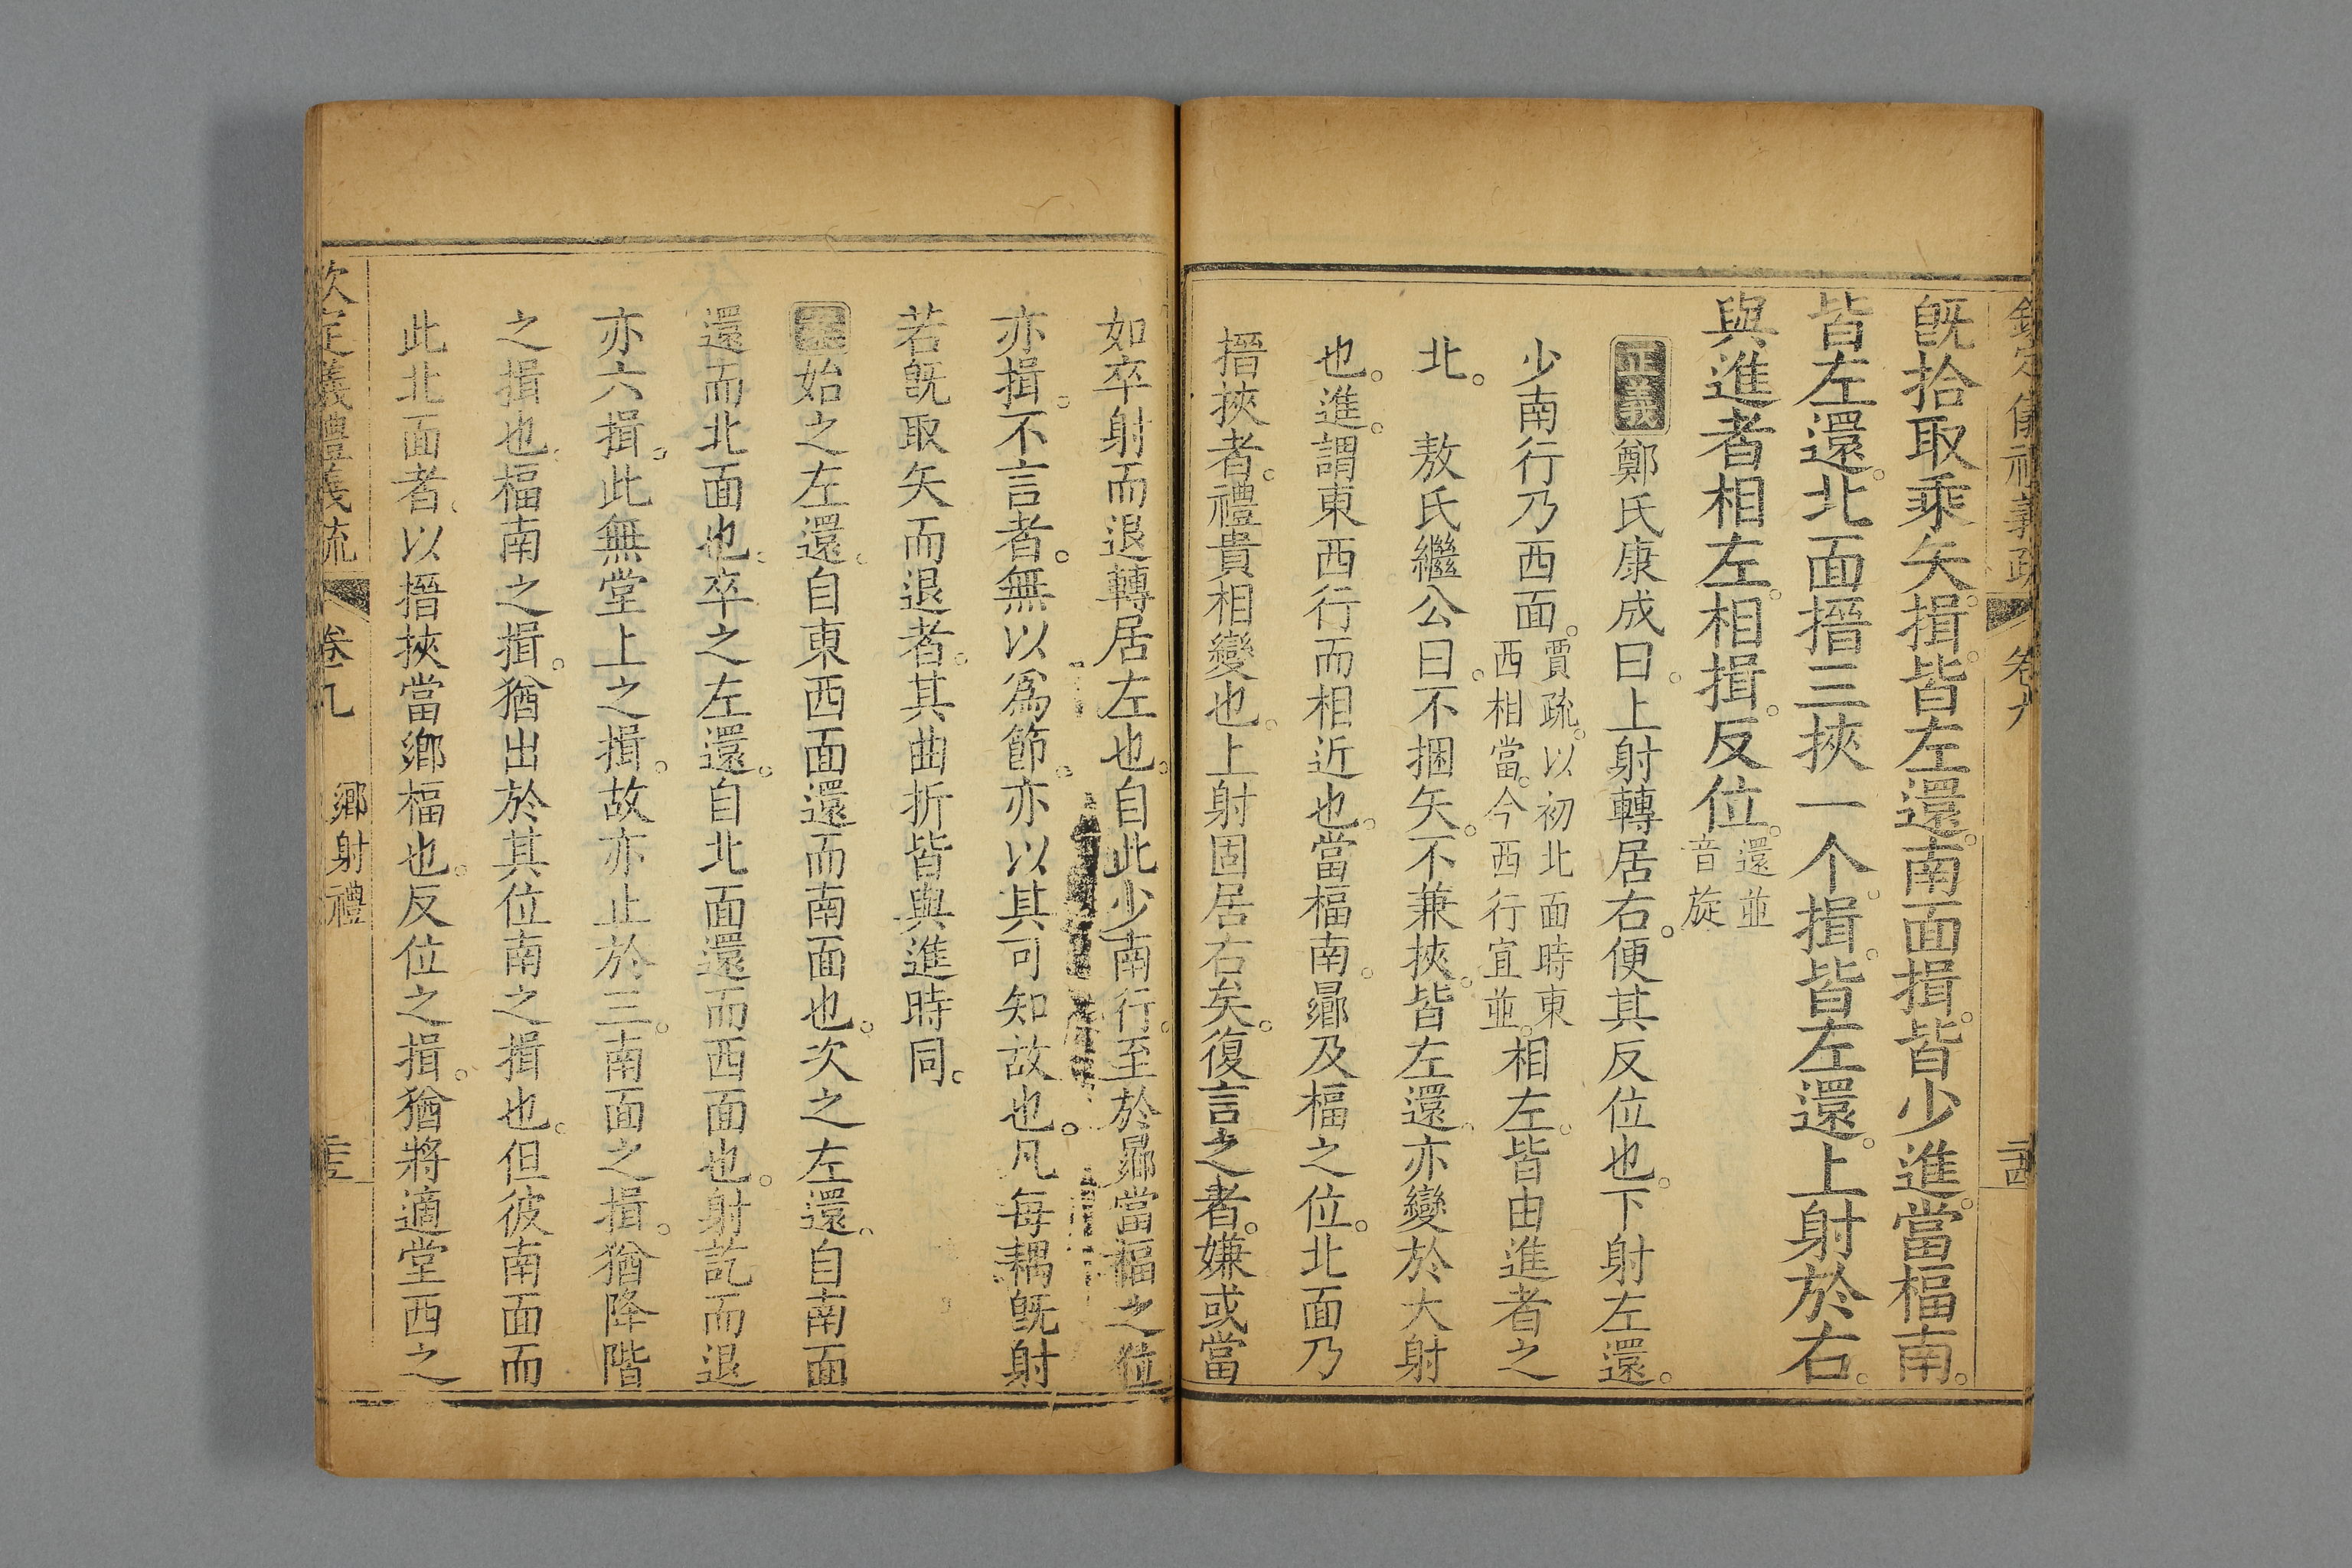 欽定儀禮義疏 卷九 二十四
旣拾取乘矢。揖。皆左還。南面揖。皆少進。當楅南。
皆左還。北面搢三挾一个。揖。皆左還。上射於右。
與進者相左。相揖。反位。還並音旋
正義鄭氏康成曰。上射轉居右。便其反位也。下射左還。
少南行乃西面。賈疏。以初北面時東西相當。今西行宜並。相左。皆由進者之
北。 敖氏繼公曰。不捆矢。不兼挾。皆左還。亦變於大射
也。進。謂東西行而相近也。當楅南。曏及楅之位。北面乃
搢挾者。禮貴相變也。上射固居右矣。復言之者。嫌或當
如卒射而退轉居左也。自此少南行。至於曏當楅之位
亦揖。不言者。無以爲節。亦以其可知故也。凡每耦旣射
若旣取矢而退者。其曲折皆與進時同。
始之左還。自東西面還而南面也。次之左還。自南面
還而北面也。卒之左還。自北面還而西面也。射訖而退
亦六揖。此無堂上之揖。故亦止於三。南面之揖。猶降階
之揖也。楅南之揖。猶出於其位南之揖也。但彼南面而
此北面者。以搢挾當鄉楅也。反位之揖。猶將適堂西之
欽定儀禮義疏 卷九 鄉射禮